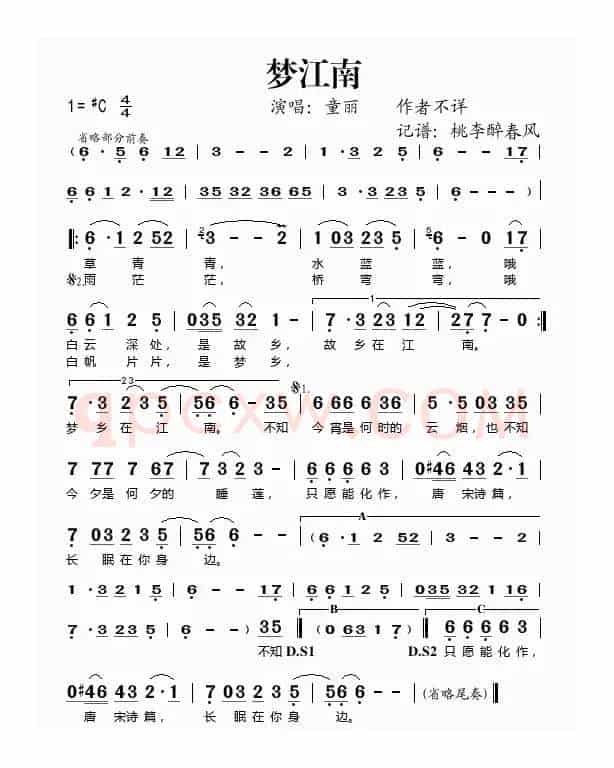 梦江南
1=♯C 4/4 演唱：童丽 作者不详
记谱：桃李醉春风
省略部分前奏
(6·5 6 12 | 3 - - 2 | 1·3 2 1 5 | 6 - - 17 |
6 6 1 2·12 | 35 32 36 65 | 3·3 23 5 | 6 - - -) |
‖: 6·1 2 52 | 3 - - 2 | 1 03 23 5 | 6 - 0 17 |
草 青 青， 水 蓝 蓝， 哦
2.雨 茫 茫， 桥 弯 弯， 哦
6 6 1 2 5 | 035 32 1· | 7·3 23 12 | 27 7 - 0 :‖
白云 深处， 是 故 乡， 故 乡 在 江 南。
白帆 片片， 是 梦 乡，
7·3 23 5 | 56 6 - 35 | 6 66 6 36 | 5·5 03 35 |
梦 乡 在 江 南。 不知 今 宵是 何时的 云 烟，也 不知
7 77 7 67 | 7 32 3· | 6 6 6 6 3 | 0♯46 43 2·1 |
今 夕是 何 夕的 睡 莲， 只愿能化作， 唐 宋诗篇，
7 03 23 5 | 56 6· - | (6·1 2 52 | 3 - - 2 |
长 眠在你身 边。
1·3 2 1 5 | 6 - - 17 | 6 6 1 2 5 | 035 32 1 16 |
7·3 23 5 | 6 - -) 35 ‖ (0 63 1 7) ‖ 6 6 6 6 3 |
不知 D.S1 D.S2 只愿能化作，
0♯46 43 2·1 | 7 03 23 5 | 56 6 - - | (省略尾奏) ‖
唐 宋诗篇， 长 眠在你身 边。